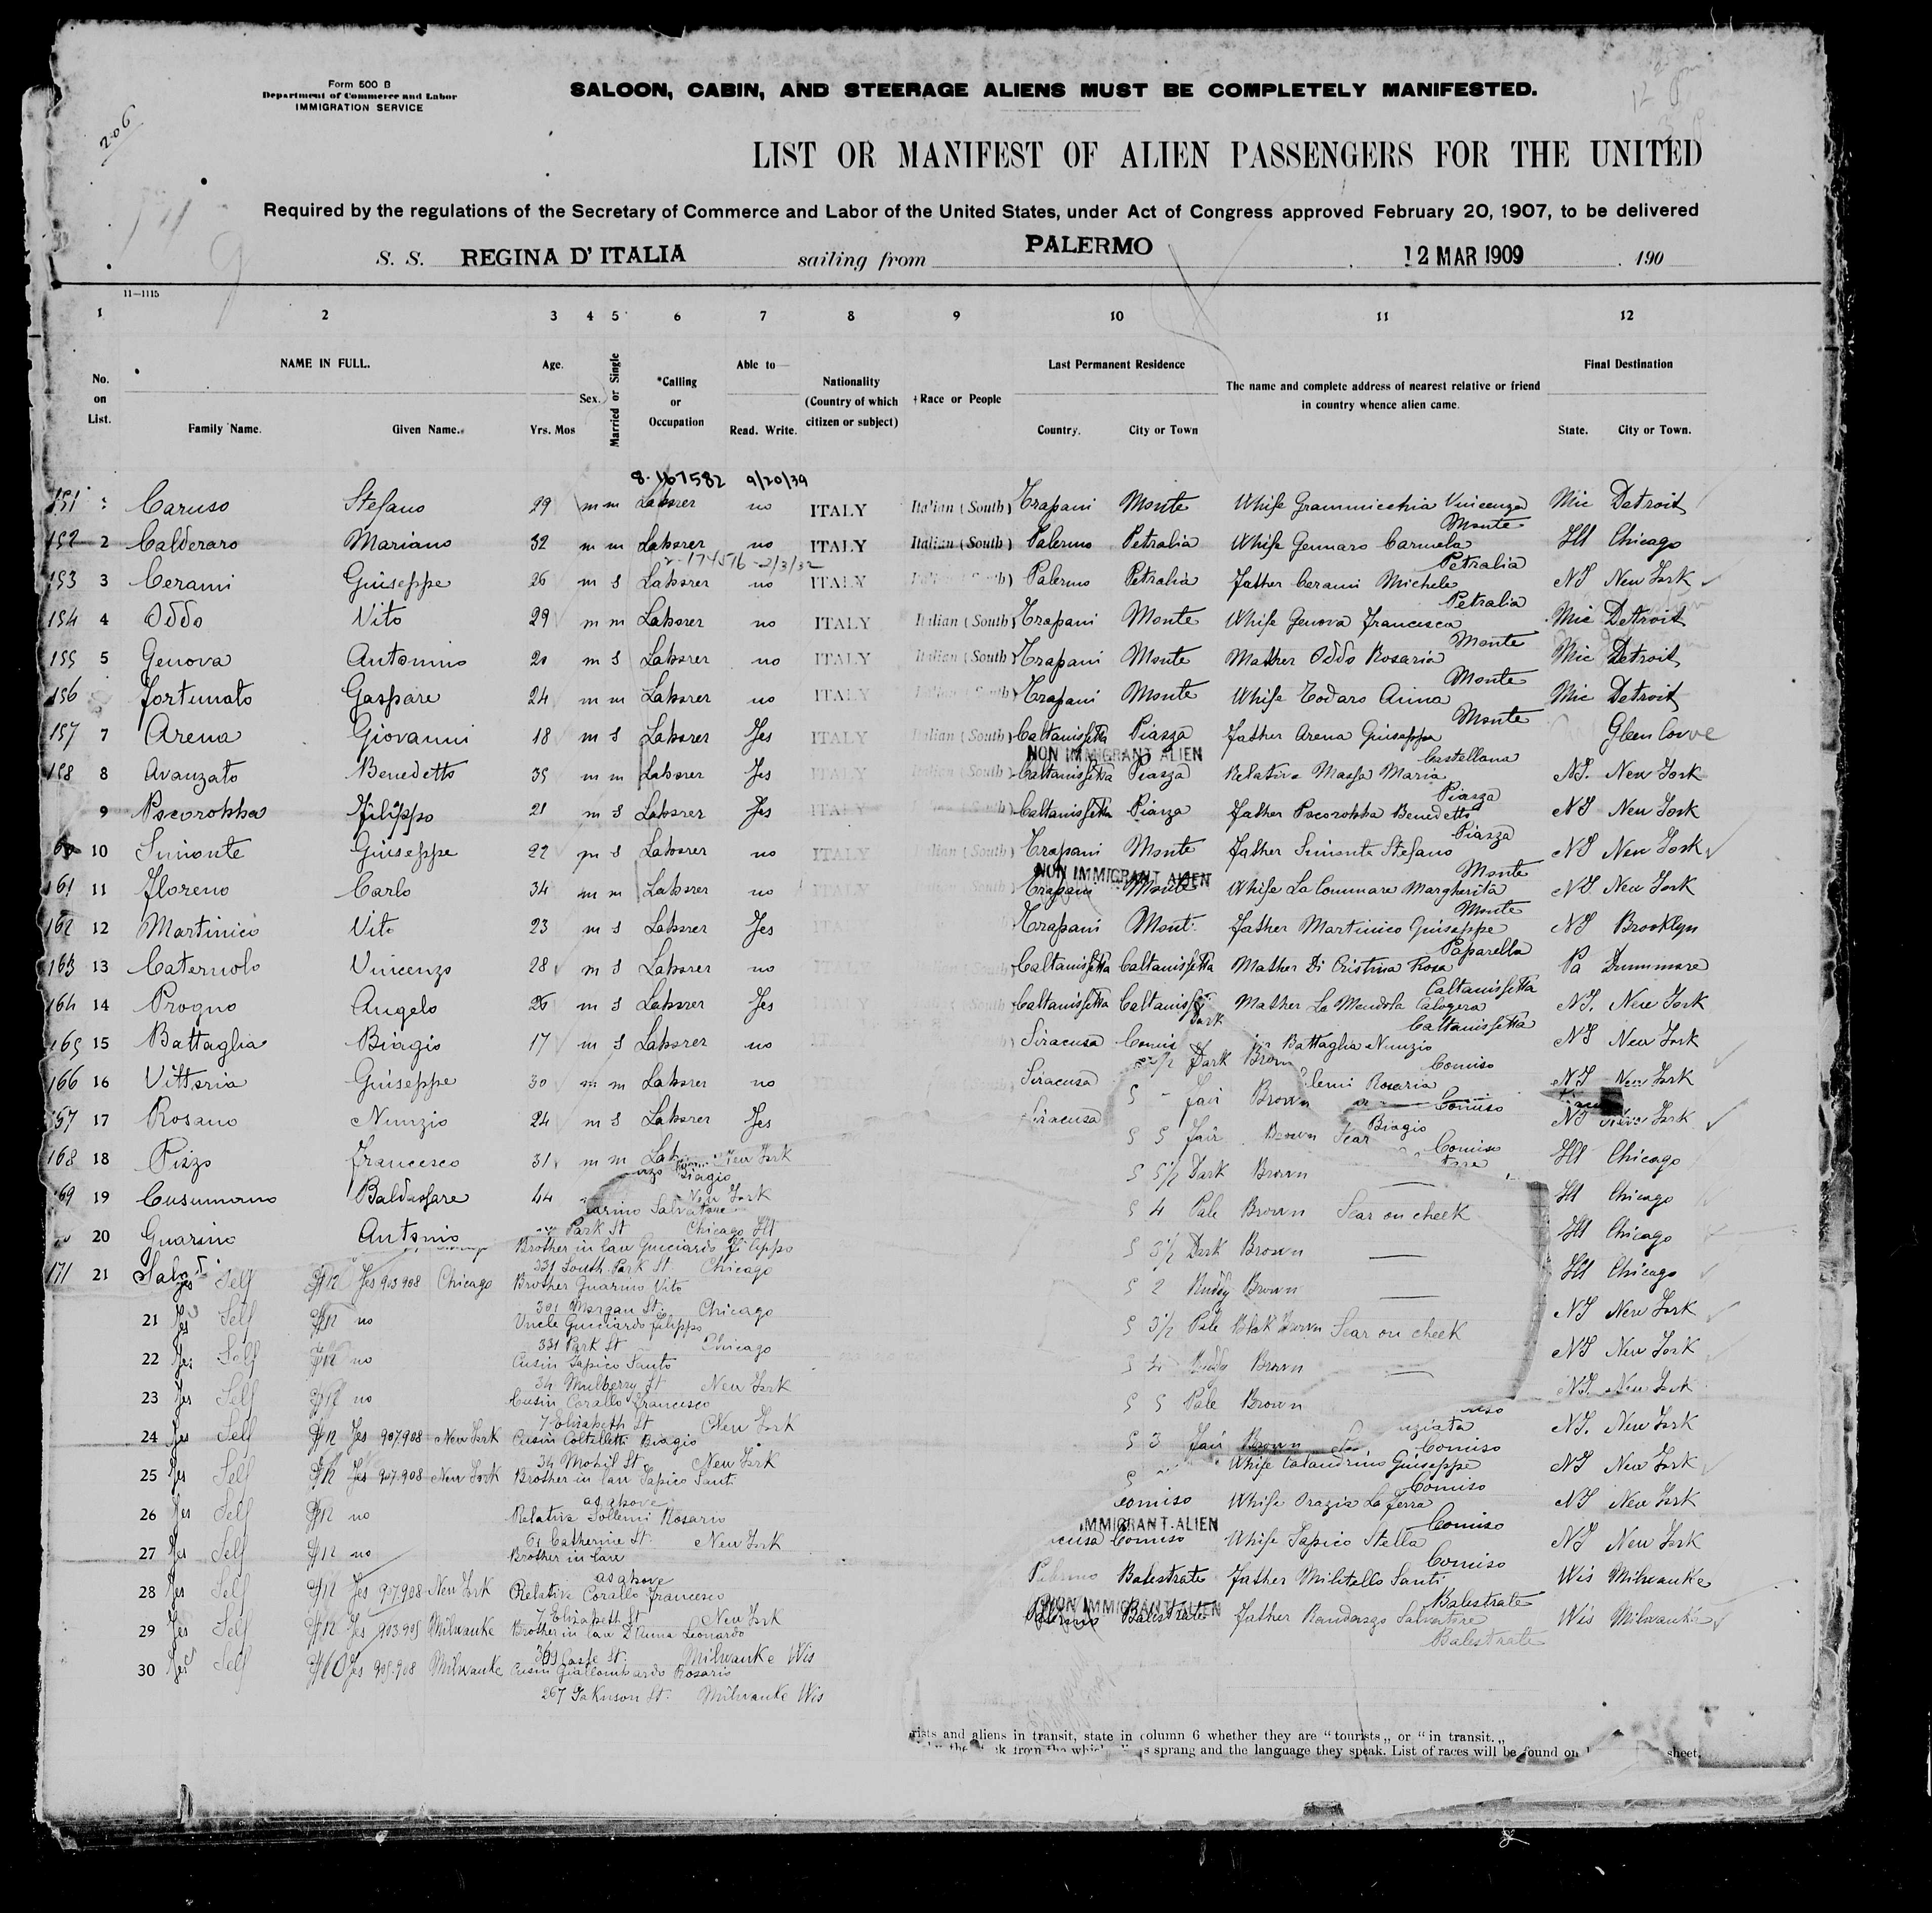 Form 500 B
Department of Commerce and Labor
IMMIGRATION SERVICE
SALOON, CABIN, AND STEERAGE ALIENS MUST BE COMPLETELY MANIFESTED.
206
LIST OR MANIFEST OF ALIEN PASSENGERS FOR THE UNITED
Required by the regulations of the Secretary of Commerce and Labor of the United States, under Act of Congress approved February 20, 1907, to be delivered
S. S. REGINA D' ITALIA sailing from PALERMO 12 MAR 1909 190
11—1115
1 2 3 4 5 6 7 8 9 10 11 12
No. on List. NAME IN FULL. Family Name. Given Name. Age. Yrs. Mos Sex. Married or Single *Calling or Occupation Able to— Read. Write. Nationality (Country of which citizen or subject) †Race or People Last Permanent Residence Country. City or Town The name and complete address of nearest relative or friend in country whence alien came. Final Destination State. City or Town.
8-167582 9/20/39
151 Caruso Stefano 29 m m Laborer no ITALY Italian (South) Trapani Monte Whife Grammicchia Vincenza Mic Detroit
Monte
152 2 Calderaro Mariano 32 m m Laborer no ITALY Italian (South) Palermo Petralia Whife Gennaro Carmela Ill Chicago
2-174516 2/3/32 Petralia
153 3 Cerami Giuseppe 26 m s Laborer no ITALY Palermo Petralia father Cerami Michele NY New York
Petralia
154 4 Oddo Vito 29 m m Laborer no ITALY Italian (South) Trapani Monte Whife Genova Francesca Mic Detroit
Monte
155 5 Genova Antonino 20 m s Laborer no ITALY Italian (South) Trapani Monte Mather Oddo Rosaria Mic Detroit
Monte
156 fortunato Gaspare 24 m m Laborer no ITALY Trapani Monte Whife Todaro Anna Mic Detroit
Monte
157 7 Arena Giovanni 18 m s Laborer Yes ITALY Italian (South) Caltanissetta Piazza father Arena Giuseppe Glen Cove
NON IMMIGRANT ALIEN Castellana
158 8 Avanzato Benedetto 35 m m Laborer Yes ITALY Caltanissetta Piazza Relative Massa Maria NY. New York
Piazza
9 Filippo 21 m s Laborer Yes ITALY Caltanissetta Piazza father Benedetto NY New York
Piazza
10 Simonte Giuseppe 22 m s Laborer no ITALY Italian (South) Trapani Monte father Simonte Stefano NY New York
NON IMMIGRANT ALIEN Monte
161 11 Floreno Carlo 34 m m Laborer no ITALY Trapani Monte Whife La Commare Margherita NY New York
Monte
162 12 Martinico Vito 23 m s Laborer Yes Trapani Mont. father Martinico Giuseppe NY Brooklyn
Paparella
163 13 Caternolo Vincenzo 28 m s Laborer no ITALY Caltanissetta Caltanissetta Mather Di Cristina Rosa Pa Dunmmore
Caltanissetta
164 14 Progno Angelo 26 m s Laborer Yes Caltanissetta Mather La Mendola Calogera NY. New York
Dark Caltanissetta
165 15 Battaglia Biagio 17 m s Laborer no Siracusa Battaglia Nunzio NY New York
Dark Brown Comiso
166 16 Vittoria Giuseppe 30 m m Laborer no Siracusa Rosaria NY New York
5 - fair Brown Comiso
17 Rosano Nunzio 24 m s Laborer Yes NY New York
5 5 fair Brown Scar Biagio Comiso
168 18 Pizzo Francesco 31 m m New York Ill Chicago
Biagio 5 5½ Dark Brown
19 Cusumano Baldassare 44 New York Ill Chicago
Salvatore 5 4 Pale Brown Scar on cheek
20 Guarino Antonio Park St Chicago Ill Ill Chicago
Brother in law Gucciardo Filippo 5 5½ Dark Brown
331 South Park St. Chicago
171 21 Self Yes 903 908 Chicago Brother Guarino Vito 5 2 Ruddy Brown Ill Chicago
301 Morgan St. Chicago
21 Yes Self no Uncle Gucciardo Filippo 5 3½ Pale Brown Scar on cheek NY New York
331 Park St Chicago
22 Yes Self no Cusin Tapico Santo Brown NY New York
34 Mulberry St New York
23 Yes Self no Cusin Corallo Francesco 5 5 Pale Brown NY. New York
7 Elisabeth St New York
24 Yes Self Yes 907.908 New York Cusin Coltelletti Biagio 5 3 fair Brown NY. New York
34 Mohil St. New York Comiso
25 Yes Self Yes 907.908 New York Brother in law Tapico Sant. Whife Calandrino Giuseppe NY New York
as above Comiso
26 Yes Self no Relative Sollemi Rosario Comiso Whife Orazia La Ferra NY New York
61 Catherine St. New York IMMIGRANT ALIEN Comiso
27 Yes Self no Brother in law Comiso Whife Tapico Stella NY New York
as above Comiso
28 Yes Self Yes 907.908 New York Relative Corallo Francesco Palermo Balestrate father Militello Santi Wis Milwauke
7 Elisabeth St New York NON IMMIGRANT ALIEN Balestrate
29 Yes Self Yes 903.905 Milwauke Brother in law D'Anna Leonardo Palermo Balestrate father Randazzo Salvatore Wis Milwauke
Milwauke Wis Balestrate
30 Yes Self Yes 905.908 Milwauke Cusin Giallombardo Rosario
267 Jaknson St. Milwauke Wis
and aliens in transit, state in column 6 whether they are "tourists,, or "in transit.,,
sprang and the language they speak. List of races will be found on sheet.